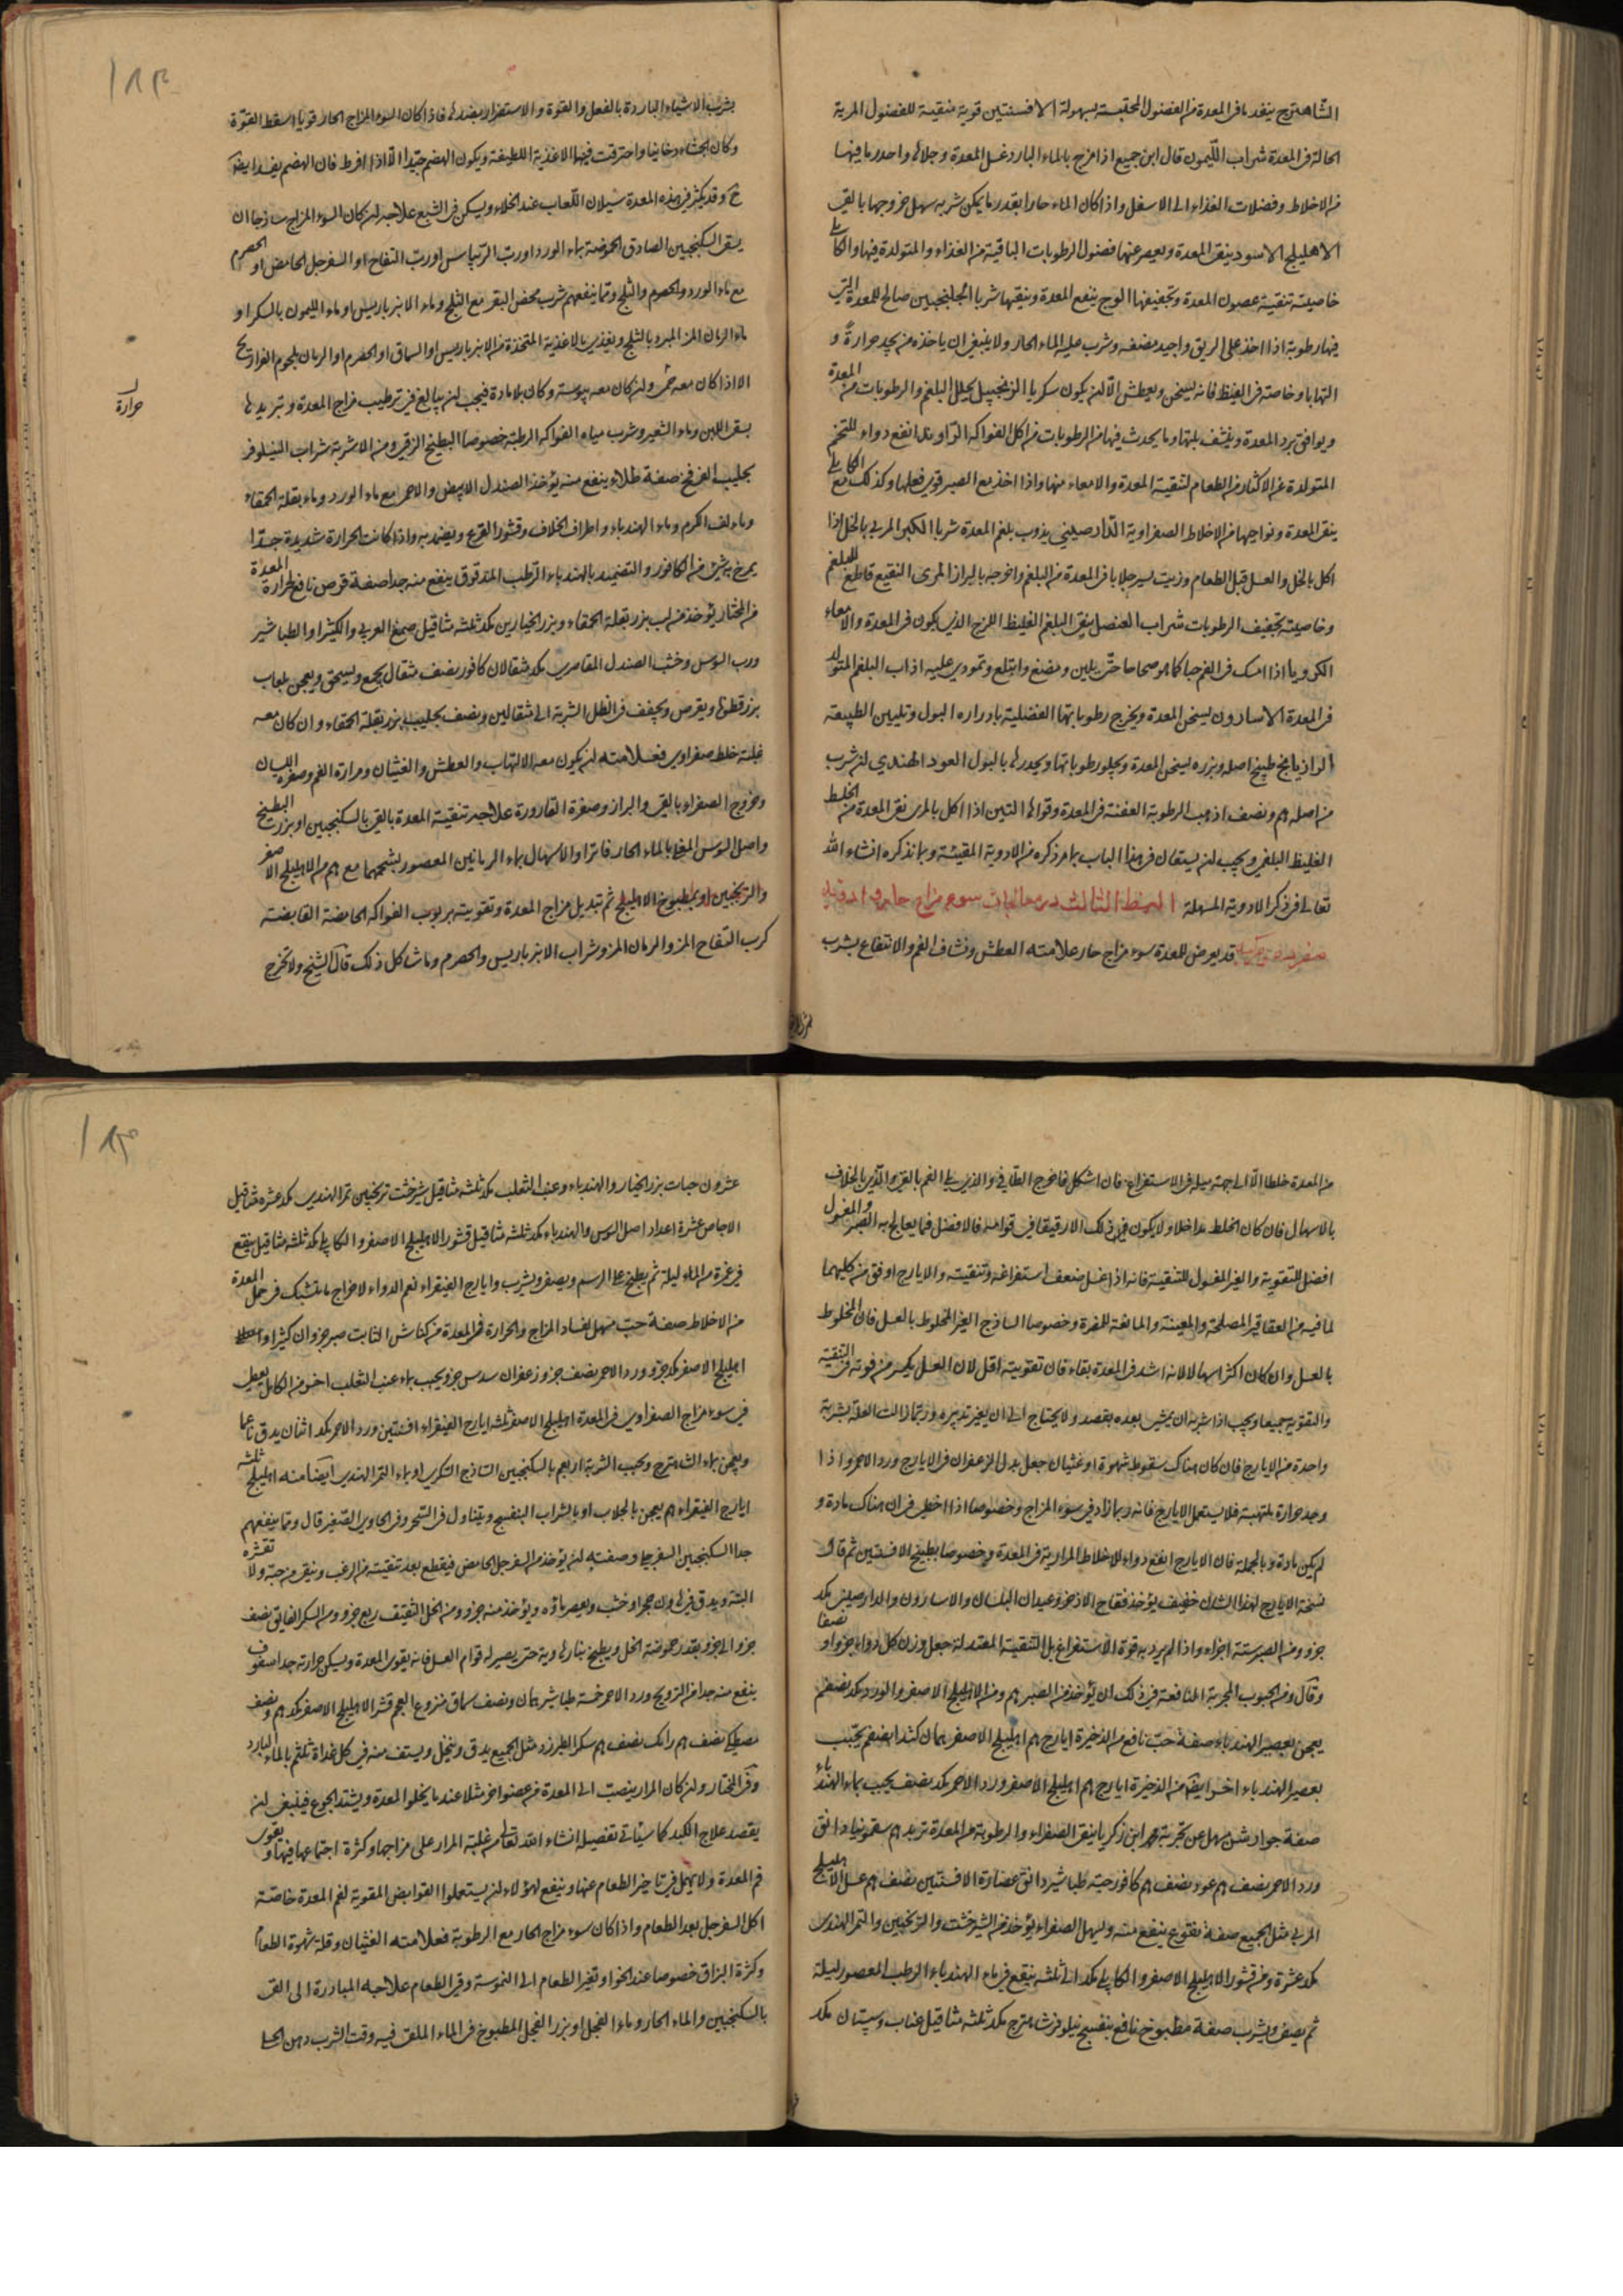 الشاهترج ينفد ما فى المعدة من الفضول المحتبسة بسهولة الافسنتين قوية منقية للفضول المرية
الحالة فى المعدة شراب الليمون قال ابن جميع اذا مزج بالماء البارد غسل المعدة وجلاها واحدر ما فيها
من الاخلاط وفضلات الغذاء الى الاسفل واذا كان الماء حارا بقدر ما يمكن شربه سهل خروجها بالقى
الاهليلج الاسود ينقى المعدة ويعصر عنها فضول الرطوبات الباقية من الغذاء والمتولدة فيها والكابلى
خاصيته تنقية فضول المعدة وتجفيفها الوج ينفع المعدة وينقيها شربا الجلنجبين صالح للمعدة التى
فيها رطوبة اذا اخذ على الريق واجيد مضغه وشرب عليه الماء الحار ولا ينبغى ان ياخذه من يجد حرارة و
التهابا وخاصة فى القيظ فانه يسخن ويعطش الا ان يكون سكريا الزنجبيل يحلل البلغم والرطوبات من المعدة
ويوافق برد المعدة وينشف بلتها وما يحدث فيها من الرطوبات من اكل الفواكه الراوند انفع دواء للتخم
المتولدة عن الاكثار من الطعام لتنقية المعدة والامعاء منها واذا اخذ مع الصبر قوى فعلها وكذلك مع الكابلى
ينقى المعدة ونواحيها من الاخلاط الصفراوية الدارصينى يذوب بلغم المعدة شربا الكبر المربى بالخل اذا
اكل بالخل والعسل قبل الطعام وزيت يسير جلا ما فى المعدة من البلغم واخرجه بالبراز المرى النقيع قاطع للبلغم
وخاصيته تجفيف الرطوبات شراب العنصل ينقى البلغم الغليظ اللزج الذى يكون فى المعدة والامعاء
الكرويا اذا امسك فى الفم حبا كما هو صحاحا حتى يلين ومضغ وابتلع وتمودى عليه اذاب البلغم المتولد
فى المعدة الاسارون يسخن المعدة ويخرج رطوباتها الفضلية بادراره البول وتليين الطبيعة
الرازيانج طبيخ اصله وبزره يسخن المعدة ويجلو رطوباتها ويحدرها بالبول العود الهندى ان شرب
من اصله هم ونصف اذهب الرطوبة العفنة فى المعدة وقواها التين اذا اكل بالمرى نقى المعدة من الخلط
الغليظ البلغمى ويجب ان يستعان فى هذا الباب بما مر ذكره من الادوية المقيئة وبما نذكره انشاء الله
تعالى فى ذكر الادوية المسهلة النمط الثالث در معالجات سوء مزاج حار
قد يعرض للمعدة سوء مزاج حار علامته العطش ونشاف الفم والانتفاع بشرب
بشرب الاشياء الباردة بالفعل والقوة والاستضرار بضدها فاذا كان السوء المزاج الحار قويا اسقط القوة
وكان الجشاء دخانيا واحترقت فيها الاغذية اللطيفة ويكون الهضم جيدا الا اذا افرط فان الهضم يفسد ايضا
وقد يكثر فى هذه المعدة سيلان اللعاب عند الخلاء ويسكن فى الشبع علاجه ان كان السوء المزاج ساذجا ان
يسقى السكنجبين الصادق الحموضة بماء الورد او رب الريباس او رب التفاح او السفرجل الحامض او الحصرم
مع ماء الورد والحصرم والثلج ومما ينفعهم شرب مخيض البقر مع الثلج وماء الانبرباريس او ماء الليمون بالسكر او
ماء الرمان المز المبرد بالثلج ويغذى بالاغذية المتخذة من الانبرباريس او السماق او الحصرم او الرمان بلحوم الفراريج
الا اذا كان معه حمى وان كان معه يبوسة وكان بلا مادة فيجب ان يبالغ فى ترطيب مزاج المعدة وتبريدها
حرارة
بسقى اللبن وماء الشعير وشرب مياه الفواكه الرطبة خصوصا البطيخ الزقى ومن الاشربة شراب النيلوفر
بحليب القرفخ صفة طلاء ينفع منه يؤخذ الصندل الابيض والاحمر مع ماء الورد وماء بقلة الحمقاء
وماء لف الكرم وماء الهندباء واطراف الخلاف وقشور القرع ويضمد به واذا كانت الحرارة شديدة جدا
يمرخ بشئ من الكافور والتضميد بالهندباء الرطب المدقوق ينفع منه جدا صفة قرص نافع لحرارة المعدة
من المختار يؤخذ من لب بزر بقلة الحمقاء وبزر الخيارين مكد ثلثه مثاقيل صمغ العربى والكثيرا والطباشير
ورب السوس وخشب الصندل المقاصرى مكد مثقالان كافور نصف مثقال يجمع ويسحق ويعجن بلعاب
بزرقطونا ويقرص ويجفف فى الظل الشربة الى مثقالين ونصف بحليب بزر بقلة الحمقاء وان كان معه
غلبة خلط صفراوى فعلامته ان يكون معه الالتهاب والعطش والغثيان ومرارة الفم وصفرة اللسان
وخروج الصفراء بالقى والبراز وصفرة القارورة علاجه تنقية المعدة بالقى بالسكنجبين او بزر البطيخ
واصل السوس المغلى بالماء الحار فاترا والاسهال بماء الرمانين المعصور بشحمهما مع هم من الاهليلج الاصفر
والترنجبين او بمطبوخ الاهليلج ثم تبديل مزاج المعدة وتقويته بربوب الفواكه الحامضة القابضة
كرب التفاح المز والرمان المز وشراب الانبرباريس والحصرم وما شاكل ذلك قال الشيخ ولا تخرج
من المعدة خلطا الا الى جهة ميله فى الاستفراغ فان اشكل فاخرج الطافى والذى يلى الفم بالقى والذى بالخلاف
بالاسهال فان كان الخلط مداخلا ولا يكون فى ذلك الا رقيقا فى قوامه فالافضل فيما يعالج به الصبر والمغسول
افضل للتقوية والغير المغسول للتنقية فانه اذا غسل ضعف استفراغه وتنقيته والايارج اوفق من كليهما
لما فيه من العقاقير المصلحة والمعينة والمانعة للمضرة وخصوصا الساذج الغير المخلوط بالعسل فان المخلوط
بالعسل وان كان اكثر اسهالا لانه اشد فى المعدة بقاء فان تقويته اقل لان العسل يكسر من قوته فى التنقية
والتقوية جميعا ويجب اذا شربه ان يمشى بعده بقصد ولا يحتاج الى ان يغير تدبيره وربما زالت العلة بشربة
واحدة من الايارج فان كان هناك سقوط شهوة او غثيان جعل بدل الزعفران فى الايارج ورد الاحمر واذا
وجد حرارة ملتهبة فلا يستعمل الايارج فانه ربما زاد فى سوء المزاج وخصوصا اذا اخطى فى ان هناك مادة و
لم يكن مادة وبالجملة فان الايارج انفع دواء للاخلاط المرارية فى المعدة وخصوصا بطبيخ الافسنتين ثم قال
نسخة الايارج لهذا الشان خفيف يؤخذ فقاح الاذخر وعيدان البلسان والاسارون والدارصينى مكد
جزو ومن الصبر ستة اجزاء واذا لم يرد به قوة الاستفراغ بل التنقية المعتدلة جعل وزن كل دواء جزوا و نصفا
وقال ومن الحبوب المجربة النافعة فى ذلك ان يؤخذ من الصبر هم ومن الاهليلج الاصفر والورد مكد نصفهم
يعجن بعصير الهندباء صفة حب نافع من الذخيرة ايارج هم اهليلج الاصفر
بعصير الهندباء اخر ايضا من الذخيرة ايارج هم اهليلج الاصفر ورد الاحمر مكد نصف يحبب بماء الهندباء
صفة جوارشن مسهل عن تجربة محمد ابن زكريا ينقى الصفراء والرطوبة من المعدة تربد هم سقمونيا دانق
ورد الاحمر نصف هم عود نصف هم كافور حبة طباشير دانق عصارة الافسنتين نصف هم عسل الاهليلج
المربى مثل الجميع صفة نقوع ينفع منه ويسهل الصفراء يؤخذ من الشيرخشت والترنجبين والتمر الهندى
مكد عشرة ومن قشور الاهليلج الاصفر والكابلى مكد الى ثلثه ينقع فى ماء الهندباء الرطب المعصور ليلة
ثم يصفى ويشرب صفة مطبوخ نافع بنفسج نيلوفر شاهترج مكد ثلثه مثاقيل عناب وسپستان مكد
عشرون حبات بزر الخيار والهندباء وعنب الثعلب مكد ثلثه مثاقيل شيرخشت ترنجبين تمر الهندى مكد عشره مثاقيل
الاجاص عشرة اعداد اصل السوس والهندباء مكد ثلثه مثاقيل قشور الاهليلج الاصفر والكابلى مكد ثلثه مثاقيل ينقع
فى غمره من الماء ليلة ثم يطبخ على الرسم ويصفى ويشرب وايارج الفيقراء نعم الدواء لاخراج ما تشبك فى خمل المعدة
من الاخلاط صفة حب مسهل لفساد المزاج والحرارة فى المعدة من كناش الثابت صبر جزوان كثيرا
اهليلج الاصفر مكد جزو ورد الاحمر نصف جزو زعفران سدس جزو يحبب بماء عنب الثعلب اخر من الكامل يعطى
فى سوء مزاج الصفراوى فى المعدة اهليلج الاصفر ثلثه ايارج الفيقراء افسنتين ورد الاحمر مكد اثنان يدق ناعما
ويعجن بماء الشاهترج ويحبب الشربة اربعم بالسكنجبين الساذج السكرى او بماء التمر الهندى ايضا منه اهليلج ثلثه
ايارج الفيقراء هم يعجن بالجلاب او بالشراب البنفسج ويتناول فى السحر وفى الحاوى الصغير قال ومما ينفعهم
جدا السكنجبين السفرجلى وصفته ان يؤخذ من السفرجل الحامض فيقطع بعد تنقيته من الزغب وينقى من حبه ولا تقشره
البتة ويدق فى هاون حجر او خشب ويعصر ماؤه ويؤخذ منه جزو ومن الخل الثقيف ربع جزو ومن السكر الفايق نصف
جزو الى جزو بقدر حموضة الخل ويطبخ بنار هادية حتى يصير له قوام العسل فانه يقوى المعدة ويسكن حرارته جدا سفوف
ينفع منه جدا من الترويح ورد الاحمر خمسة طباشير همان ونصف سماق منزوع العجم قشر الاهليلج الاصفر مكد هم ونصف
مصطكى نصف هم رامك نصف هم سكر الطبرزد مثل الجميع يدق وينخل ويستف منه فى كل غداة ثلثهم بالماء البارد
وفى المختار وان كان المرار ينصب الى المعدة من عضو اخر مثلا عند ما يخلو المعدة ويشتد الجوع فينبغى ان
يقصد علاج الكبد كما سيأتى تفصيله انشاء الله تعالى من غلبة المرار على مزاجها وكثرة اجتماعها فيها ويقوى
فم المعدة ولا يهمل فى تاخير الطعام عنها وينفع لهؤلاء ان يستعملوا القوابض المقوية لفم المعدة خاصة
اكل السفرجل بعد الطعام واذا كان سوء مزاج الحار مع الرطوبة فعلامته الغثيان وقلة شهوة الطعام
وكثرة البزاق خصوصا عند الخوا وتغير الطعام الى السهوكة وقى الطعام علاجه المبادرة الى القى
بالسكنجبين والماء الحار وماء الفجل او بزر الفجل المطبوخ فى الماء الملقى فيه وقت الشرب دهن الحل